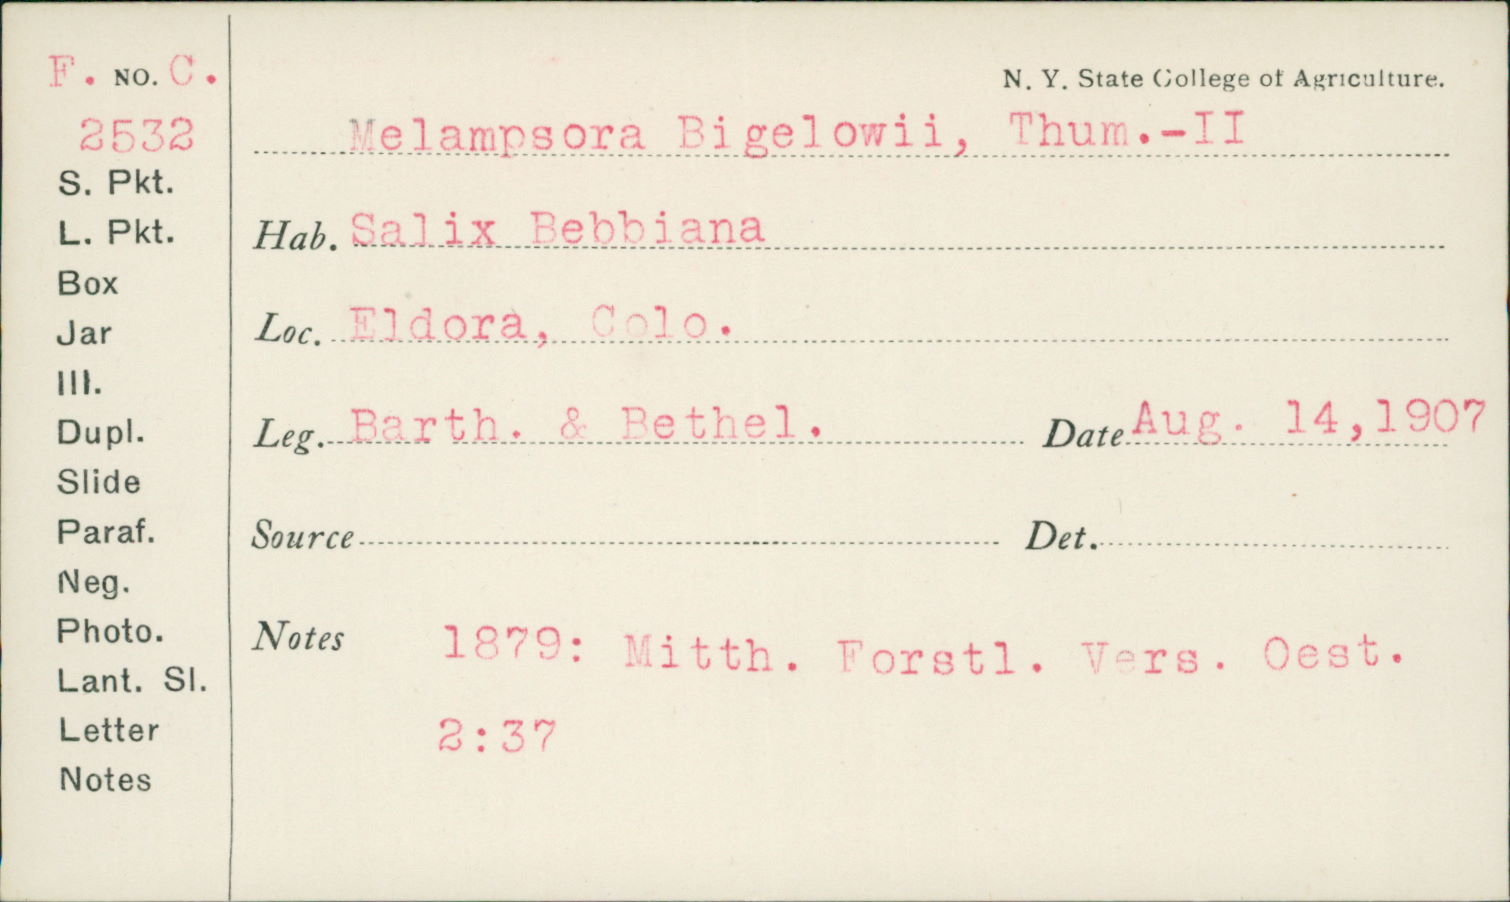 F. NO. C.
2532
S. Pkt.
L. Pkt.
Box
Jar
Ill.
Dupl.
Slide
Paraf.
Neg.
Photo.
Lant. Sl.
Letter
Notes
N. Y. State College of Agriculture.
Melampsora Bigelowii, Thum.-II
Hab. Salix Bebbiana
Loc. Eldora, Colo.
Leg. Barth. & Bethel. Date Aug. 14,1907
Source Det.
Notes 1879: Mitth. Forstl. Vers. Oest.
2:37